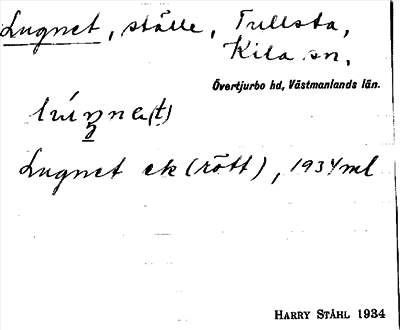 Lugnet, ställe, Tullsta,
Kila sn.
Övertjurbo hd, Västmanlands län.
Lugnet ek (rött), 1934 ml
HARRY STÅHL 1934